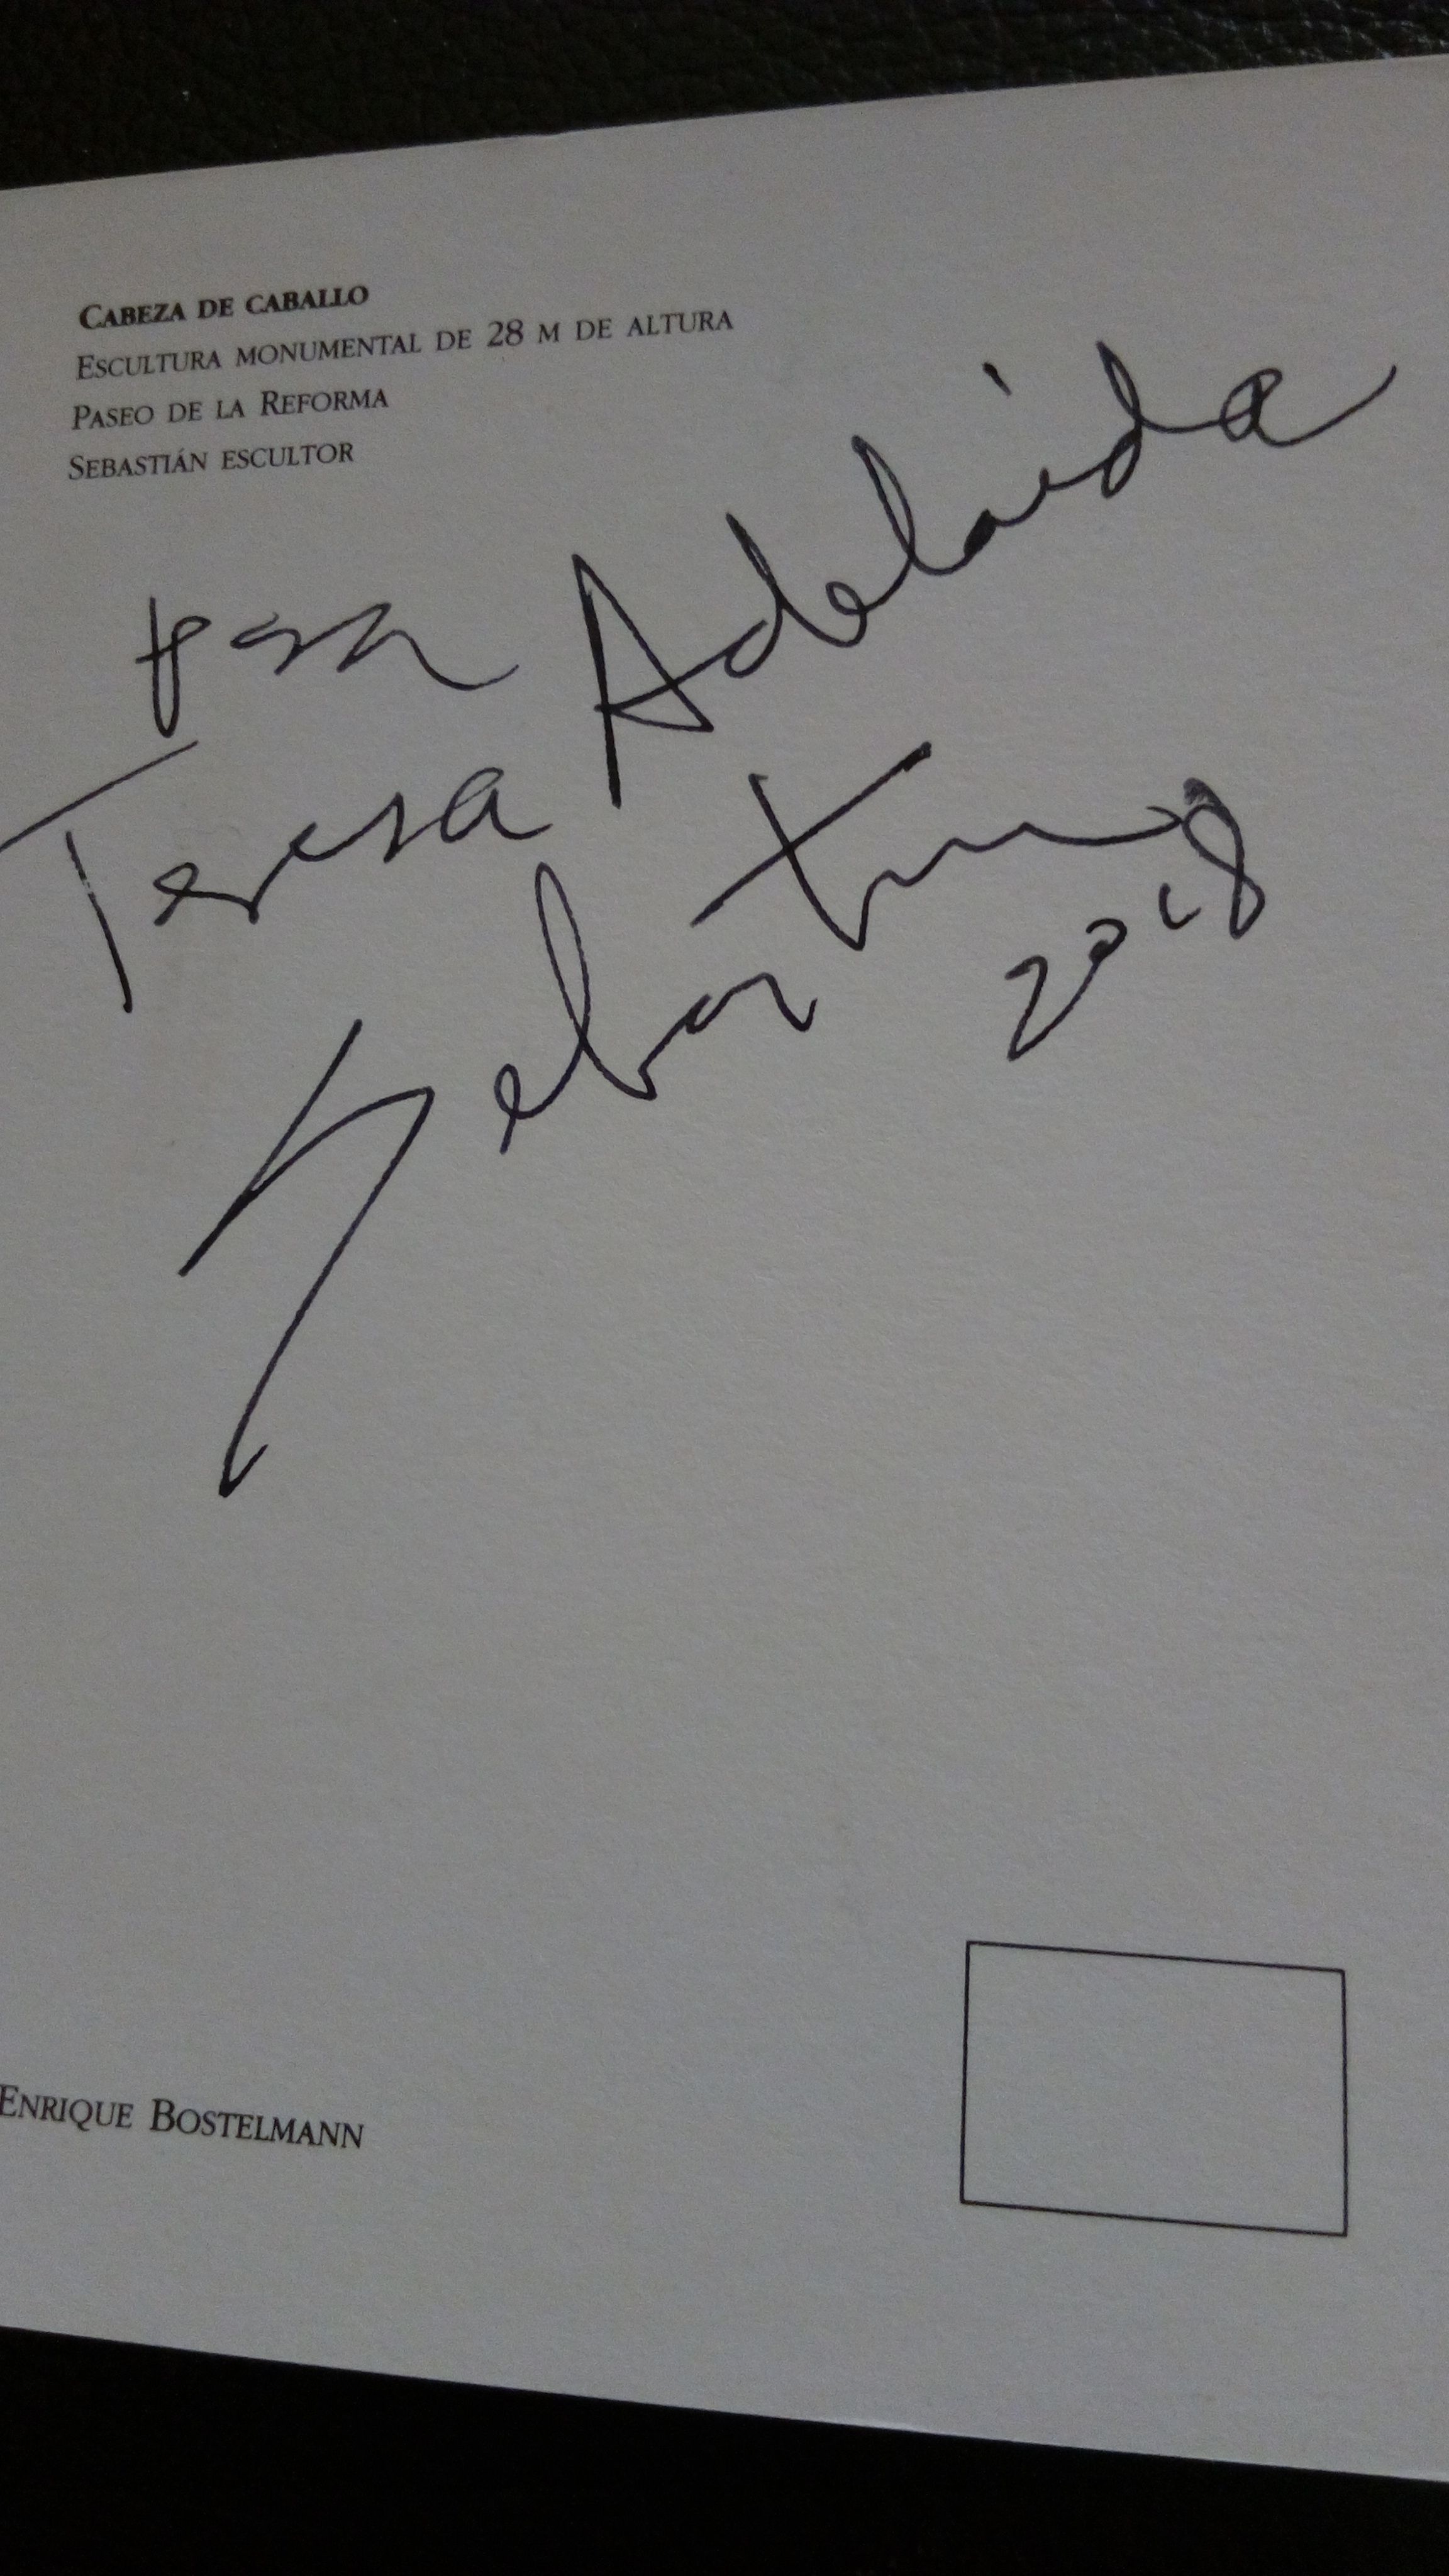 CABEZA DE CABALLO
ESCULTURA MONUMENTAL DE 28 M DE ALTURA
PASEO DE LA REFORMA
SEBASTIÁN ESCULTOR
para
Teresa Adelaida
Sebastian
2018
ENRIQUE BOSTELMANN